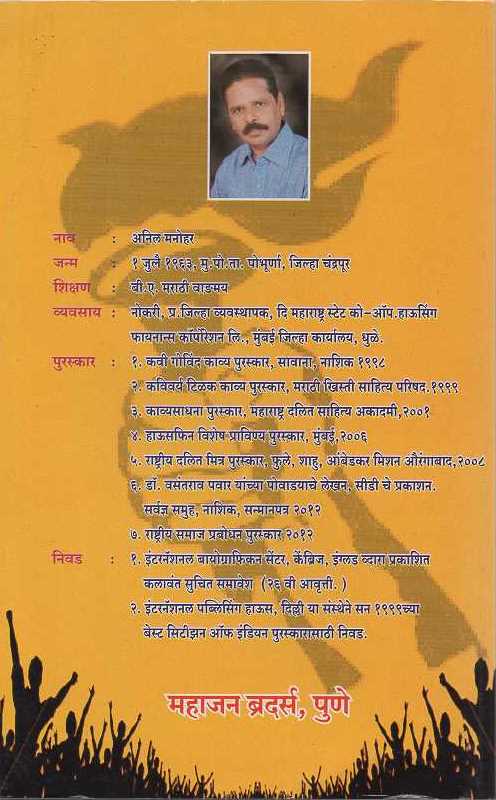 नाव : अनिल मनोहर
जन्म : १ जुलै १९६३, मु.पो.ता. पोंभूर्णा, जिल्हा चंद्रपूर
शिक्षण : बी.ए. मराठी वाङमय
व्यवसाय : नोकरी, प्र.जिल्हा व्यवस्थापक, दि महाराष्ट्र स्टेट को-ऑप.हाऊसिंग
फायनान्स कॉर्पोरेशन लि., मुंबई जिल्हा कार्यालय, धुळे.
पुरस्कार : १. कवी गोविंद काव्य पुरस्कार, सावाना, नाशिक १९९८
२. कविवर्य टिळक काव्य पुरस्कार, मराठी ख्रिस्ती साहित्य परिषद.१९९९
३. काव्यसाधना पुरस्कार, महाराष्ट्र दलित साहित्य अकादमी,२००१
४. हाऊसफिन विशेष प्राविण्य पुरस्कार, मुंबई,२००६
५. राष्ट्रीय दलित मित्र पुरस्कार, फुले, शाहु, आंबेडकर मिशन औरंगाबाद,२००८
६. डॉ. वसंतराव पवार यांच्या पोवाडयाचे लेखन, सीडी चे प्रकाशन.
सर्वज्ञ समुह, नाशिक, सन्मानपत्र २०१२
७. राष्ट्रीय समाज प्रबोधन पुरस्कार २०१२
निवड : १. इंटरनॅशनल बायोग्राफिकन सेंटर, केंब्रिज, इंग्लड व्दारा प्रकाशित
कलावंत सुचित समावेश (२६ वी आवृत्ती. )
२. इंटरनॅशनल पब्लिसिंग हाऊस, दिल्ली या संस्थेने सन १९९९च्या
बेस्ट सिटीझन ऑफ इंडियन पुरस्कारासाठी निवड.
महाजन ब्रदर्स, पुणे